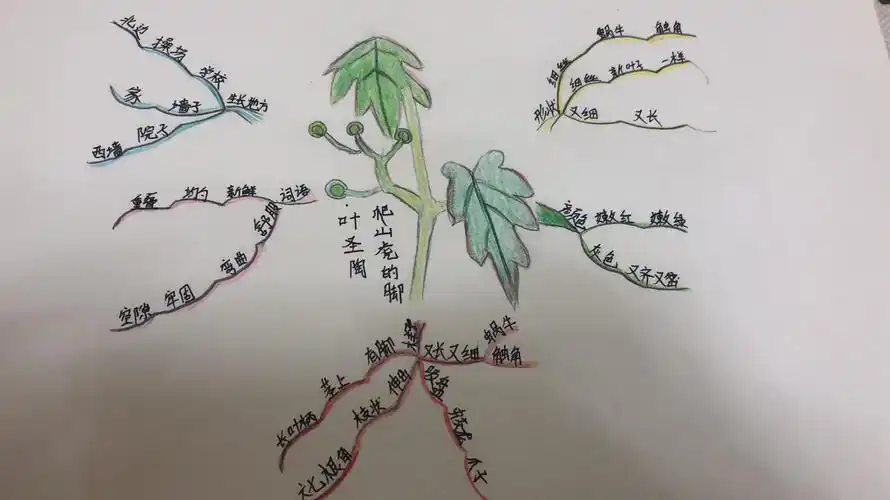 北边
操场
学校
家
墙子
生长地方
院子
西墙
重叠
均匀
新鲜
词语
舒服
弯曲
牢固
空隙
爬山虎的脚
·叶圣陶
蜗牛
触角
细丝
细丝
新叶子
一样
形状
又细
又长
颜色
嫩红
嫩绿
灰色
又齐又密
有脚
茎上
长叶柄
伸出
枝状
六七根角
又长又细
蜗牛
触角
吸盘
蛟龙
爪子